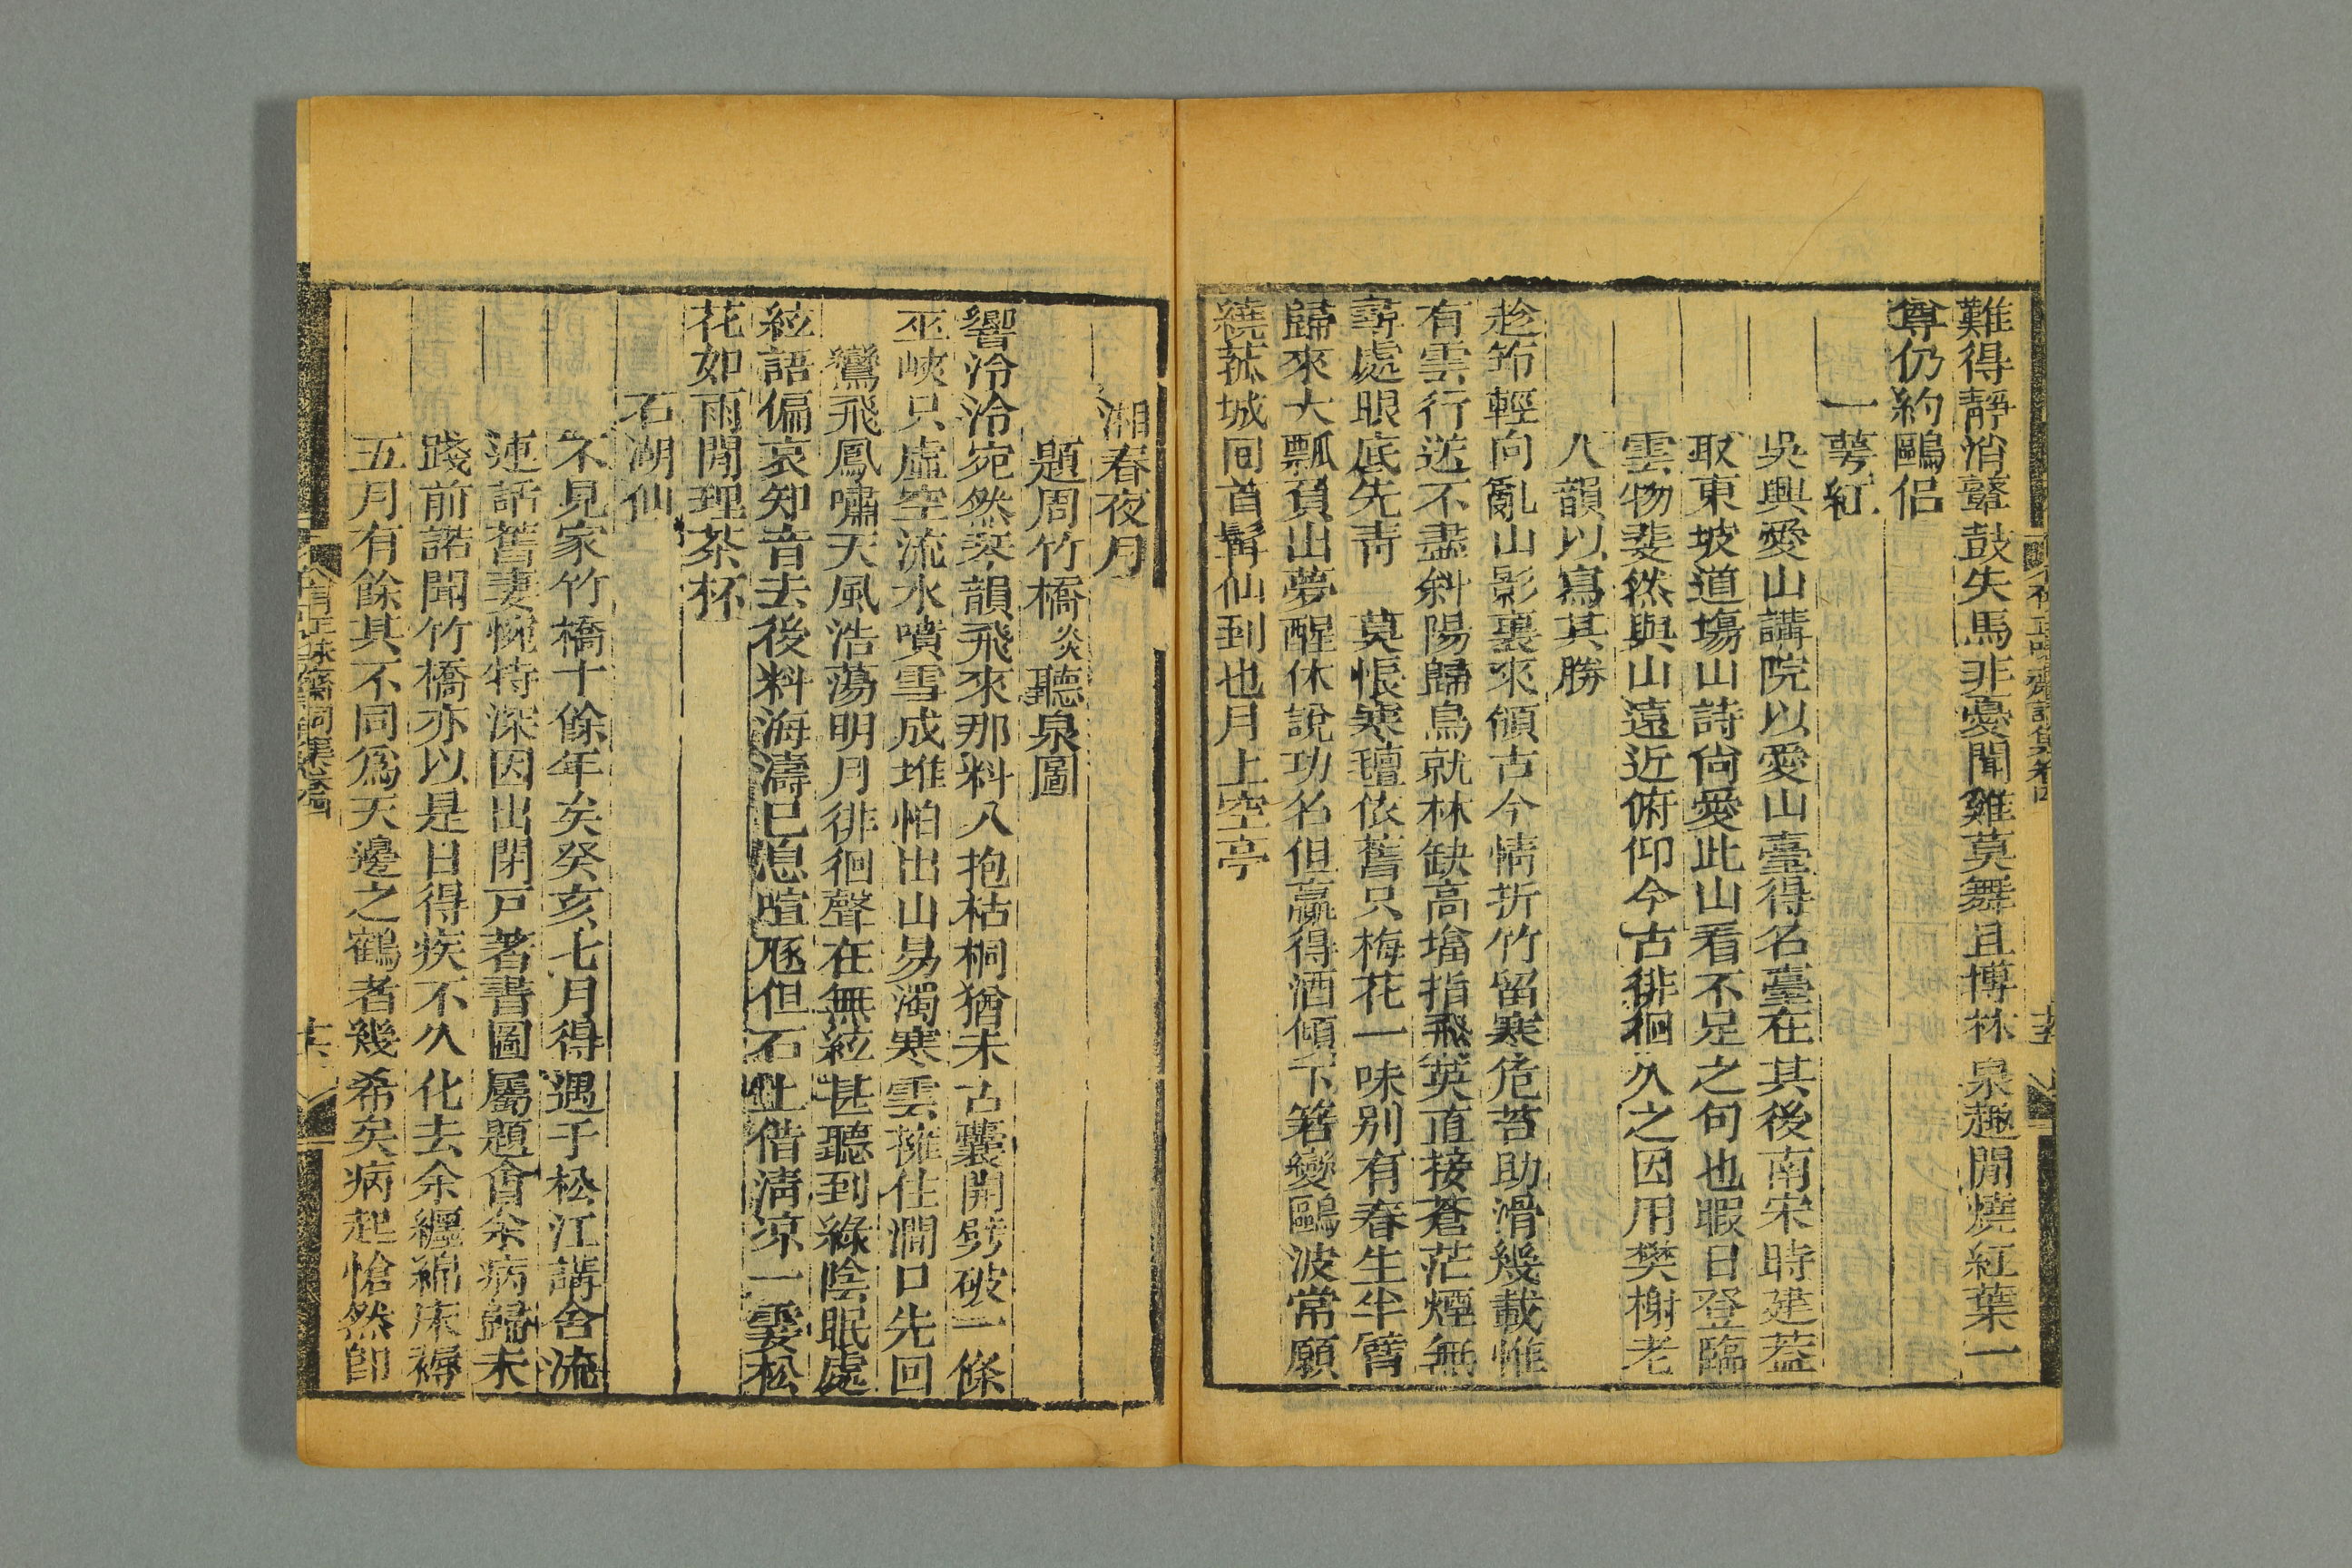 難得靜消鼙鼓失馬非憂聞雞莫舞且博林泉趣閒燒紅葉一
尊仍約鷗侶
一萼紅
吳興愛山講院以愛山臺得名臺在其後南宋時建蓋
取東坡道場山詩尙愛此山看不足之句也暇日登臨
雲物斐然與山遠近俯仰今古徘徊久之因用樊榭老
人韻以寫其勝
趁笻輕向亂山影裏來領古今情折竹留寒危苔助滑幾載惟
有雲行遊不盡斜陽歸鳥就林缺高墖指飛英直接蒼茫煙無
尋處眼底先靑 莫悵寒氊依舊只梅花一味別有春生半臂
歸來大瓢負山夢醒休說功名但贏得酒傾下箬變鷗波常願
繞菰城囘首髯仙到也月上空亭
湘春夜月
題周竹橋炎聽泉圖
響泠泠宛然琴韻飛來那料入抱枯桐猶未古囊開劈破一條
巫峽只虛空流水噴雪成堆怕出山易濁寒雲擁住澗口先回
鸞飛鳳嘯天風浩蕩明月徘徊聲在無絃甚聽到綠陰眠處
絃語偏哀知音去後料海濤已息喧豗但石上偕淸凉一霎松
花如雨閒理茶杯
石湖仙
不見家竹橋十餘年矣癸亥七月得遇于松江講舍流
連話舊悽惋特深因出閉戸著書圖屬題會余病歸未
踐前諾聞竹橋亦以是日得疾不久化去余纏綿床褥
五月有餘其不同爲天邊之鶴者幾希矣病起愴然卽